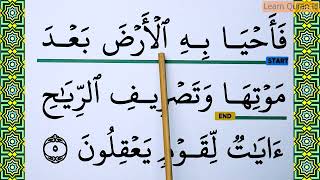 Learn Quran
فَأَحْيَا بِهِ ٱلْأَرْضَ بَعْدَ
START
مَوْتِهَا وَتَصْرِيفِ ٱلرِّيَٰحِ
END
ءَايَٰتٌ لِّقَوْمٍ يَعْقِلُونَ ٥